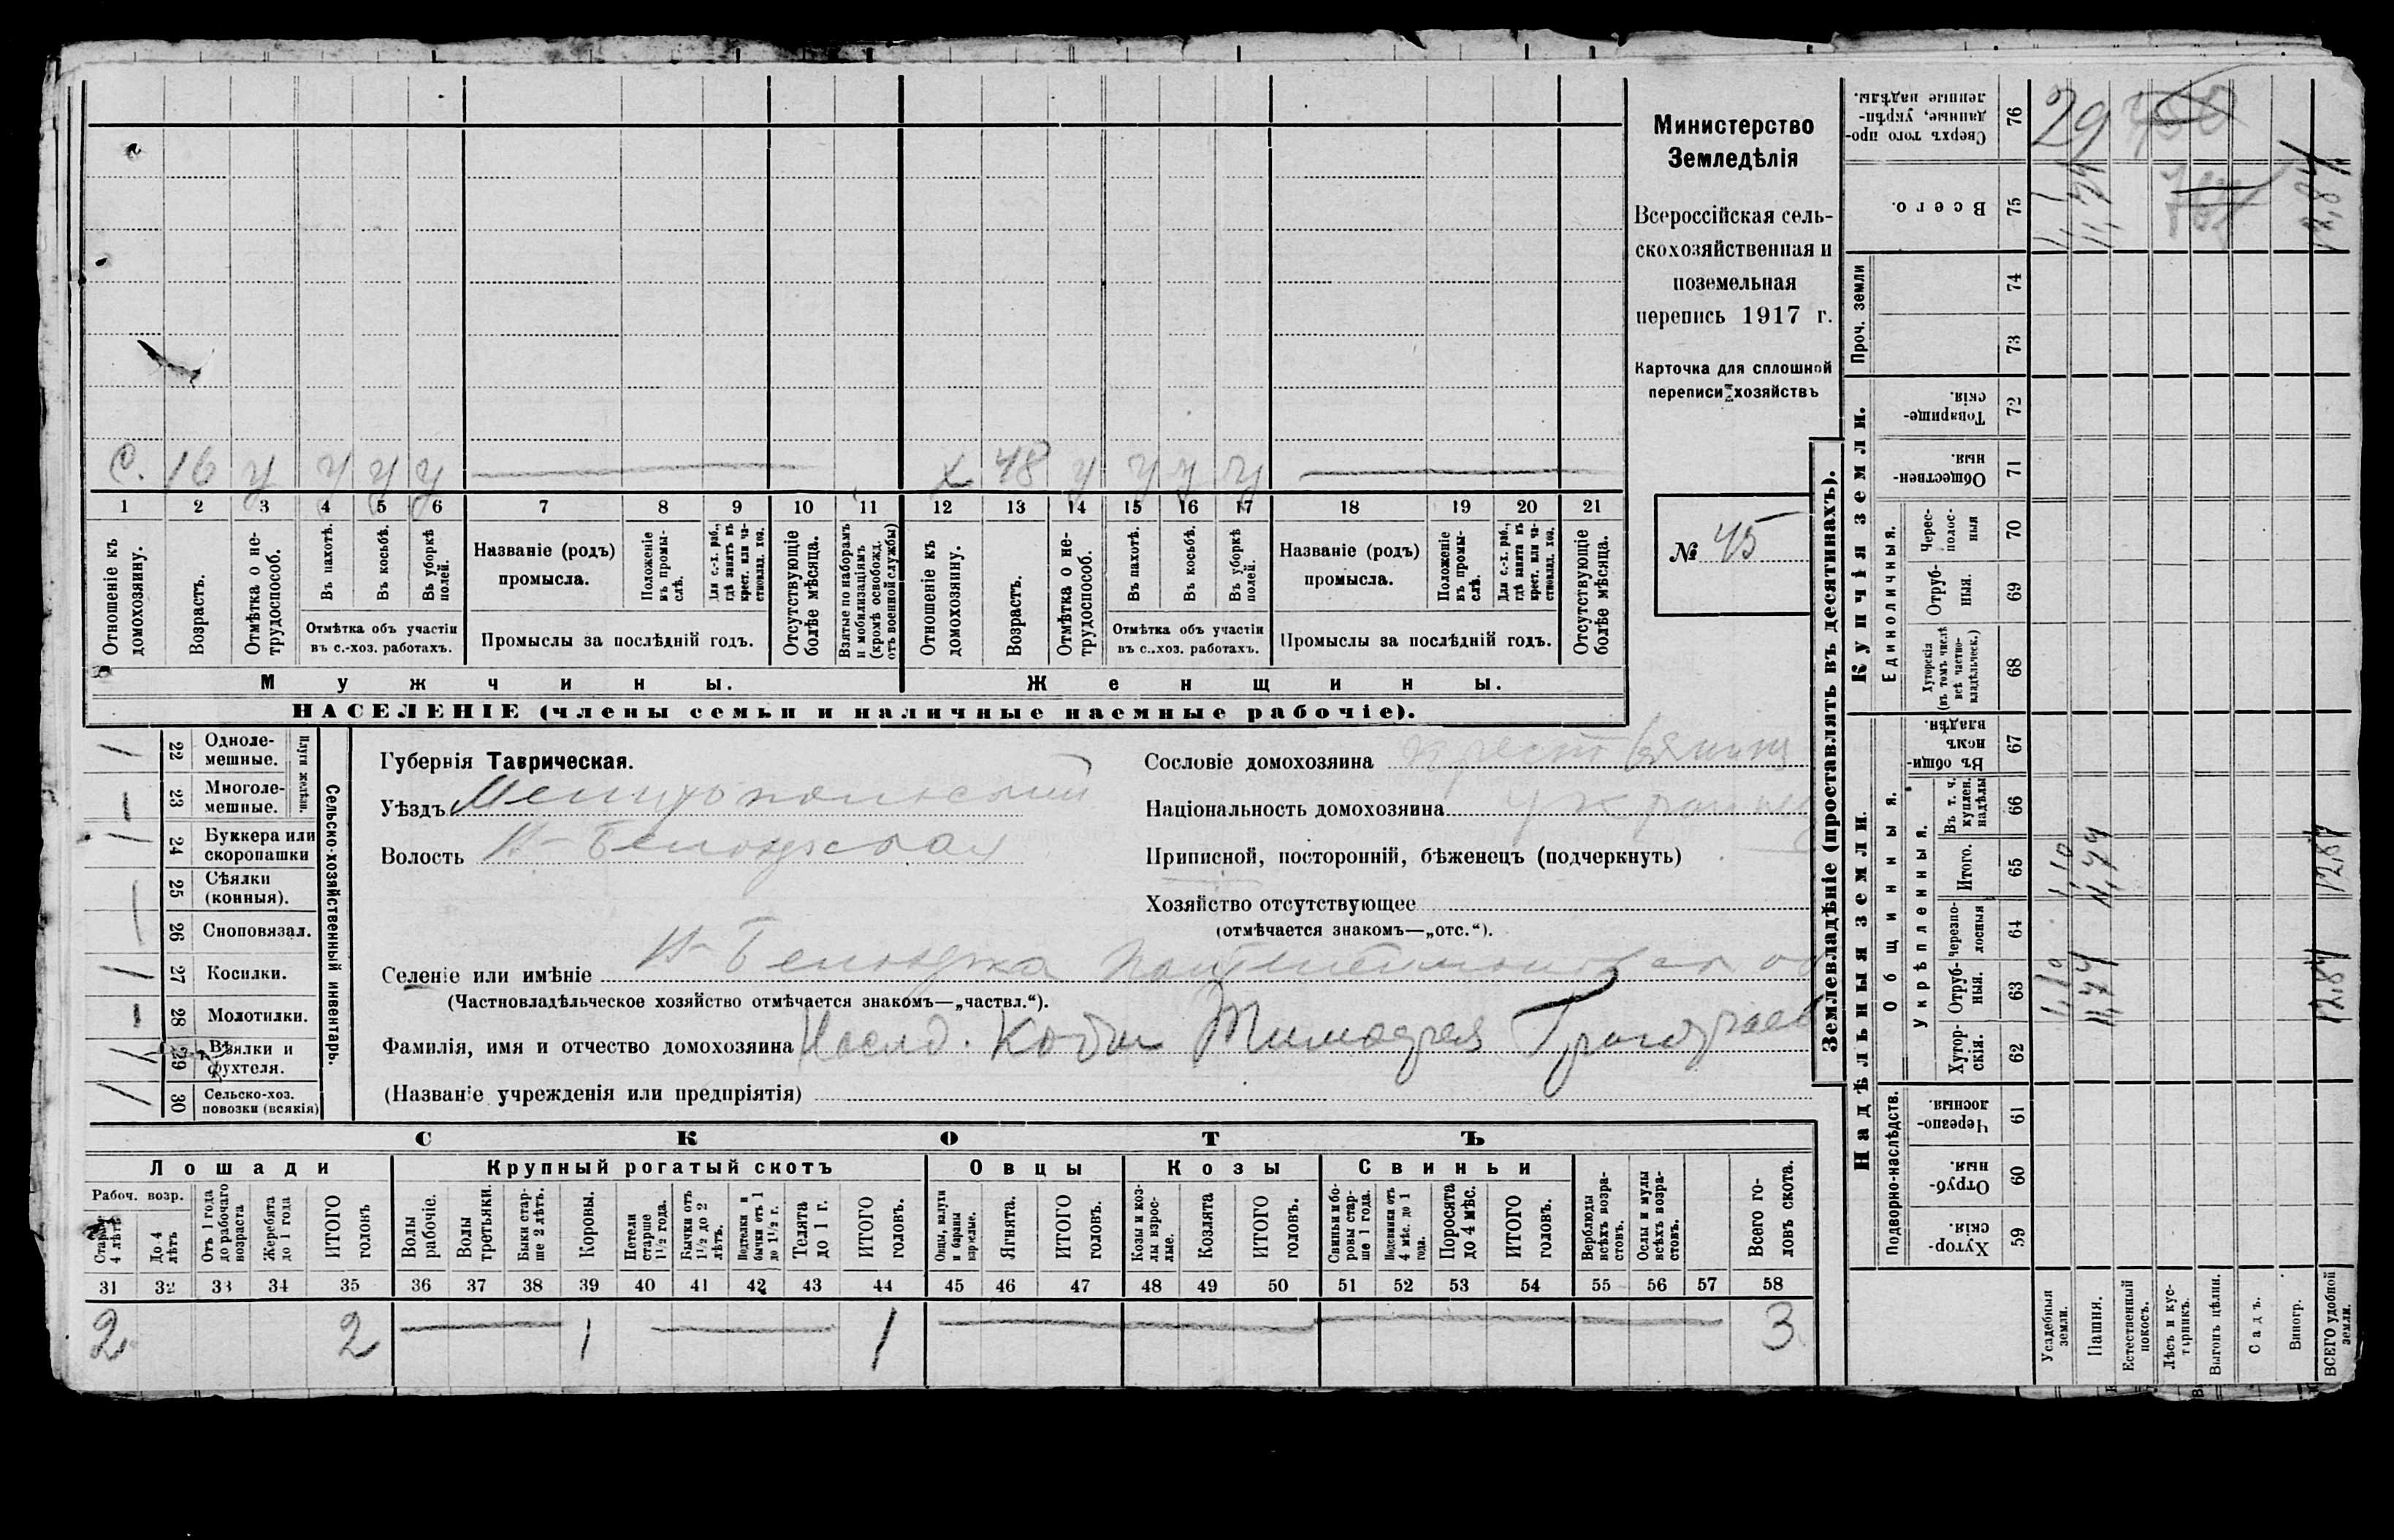 Министерство
Земледѣлія
Всероссійская сель-
скохозяйственная и
поземельная
перепись 1917 г.
Карточка для сплошной
переписи хозяйствъ
№ 45
С. 16 у у у у
х 48 у у у у
1 2 3 4 5 6 7 8 9 10 11 12 13 14 15 16 17 18 19 20 21
Отношеніе къ домохозяину.
Возрастъ.
Отмѣтка о не-трудоспособ.
Въ пахотѣ.
Въ косьбѣ.
Въ уборкѣ полей.
Отмѣтка объ участіи
въ с.-хоз. работахъ.
Названіе (родъ)
промысла.
Положеніе въ промы-слѣ.
Для с.-х. раб., гдѣ занятъ въ крест. или ча-стновлад. хоз.
Промыслы за послѣдній годъ.
Отсутствующіе болѣе мѣсяца.
Взятые по наборамъ и мобилизаціямъ (кромѣ освобожд. отъ военной службы)
Отношеніе къ домохозяину.
Возрастъ.
Отмѣтка о не-трудоспособ.
Въ пахотѣ.
Въ косьбѣ.
Въ уборкѣ полей.
Отмѣтка объ участіи
въ с.-хоз. работахъ.
Названіе (родъ)
промысла.
Положеніе въ промы-слѣ.
Для с.-х. раб., гдѣ занята въ крест. или ча-стновлад. хоз.
Промыслы за послѣдній годъ.
Отсутствующіе болѣе мѣсяца.
Мужчины.
Женщины.
НАСЕЛЕНІЕ (члены семьи и наличные наемные рабочіе).
Сельско-хозяйственный инвентарь.
Плуги желѣзн.
22 Одноле-мешные.
23 Многоле-мешные.
24 Буккера или скоропашки
25 Сѣялки (конныя).
26 Сноповязал.
27 Косилки.
28 Молотилки.
29 Вѣялки и фухтеля.
30 Сельско-хоз. повозки (всякія)
Губернія Таврическая.
Уѣздъ Мелитопольский
Волость Н-Белозерская
Сословіе домохозяина крестьянинъ
Національность домохозяина
Приписной, посторонній, бѣженецъ (подчеркнуть)
Хозяйство отсутствующее
(отмѣчается знакомъ—„отс.“).
Селеніе или имѣніе Н-Белозерка
(Частновладѣльческое хозяйство отмѣчается знакомъ—„частвл.“).
Фамилія, имя и отчество домохозяина Наслд.
(Названіе учрежденія или предпріятія)
СКОТЪ
Лошади
Крупный рогатый скотъ
Овцы
Козы
Свиньи
Рабоч. возр.
Старше 4 лѣтъ
До 4 лѣтъ
Отъ 1 года до рабочаго возраста
Жеребята до 1 года
ИТОГО головъ
Волы рабочіе.
Волы третьяки.
Быки стар-ше 2 лѣтъ.
Коровы.
Нетели старше 1½ года.
Бычки отъ 1½ до 2 лѣтъ.
Подтелки и бычки отъ 1 до 1½ г.
Телята до 1 г.
ИТОГО головъ.
Овцы, валухи и бараны взрослые.
Ягнята.
ИТОГО головъ.
Козы и коз-лы взрос-лые.
Козлята
ИТОГО головъ.
Свиньи и бо-ровы стар-ше 1 года.
Подсвинки отъ 4 мѣс. до 1 года.
Поросята до 4 мѣс.
ИТОГО головъ.
Верблюды всѣхъ возра-стовъ.
Ослы и мулы всѣхъ возра-стовъ.
Всего го-ловъ скота.
31 32 33 34 35 36 37 38 39 40 41 42 43 44 45 46 47 48 49 50 51 52 53 54 55 56 57 58
2 2 1 1 3
Землевладѣніе (проставлять въ десятинахъ).
Надѣльныя земли.
Купчія земли.
Проч. земли
Подворно-наслѣдств.
Общинныя.
Укрѣпленныя.
Единоличныя.
59 Хутор-скія.
60 Отруб-ныя.
61 Черезпо-лосныя.
62 Хутор-скія.
63 Отруб-ныя.
64 Черезпо-лосныя
65 Итого.
66 Въ т. ч. куплен. надѣлы
67 Въ общи-нномъ владѣн.
68 Хуторскія (въ томъ числѣ всѣ частно-владѣльческ.)
69 Отруб-ныя.
70 Черес-полос-ныя
71 Обществен-ныя.
72 Товарище-скія.
73
74
75 Всего.
76 Сверхъ того про-данные, укрѣп-ленные надѣлы.
Усадебныя земли.
Пашня.
Естественный покосъ.
Лѣсъ и кус-тарникъ.
Выгонъ цѣлин.
Садъ.
Виногр.
ВСЕГО удобной земли.
1,10 1,10
11,74 11,74 11,74
12,84 12,84 12,84
29